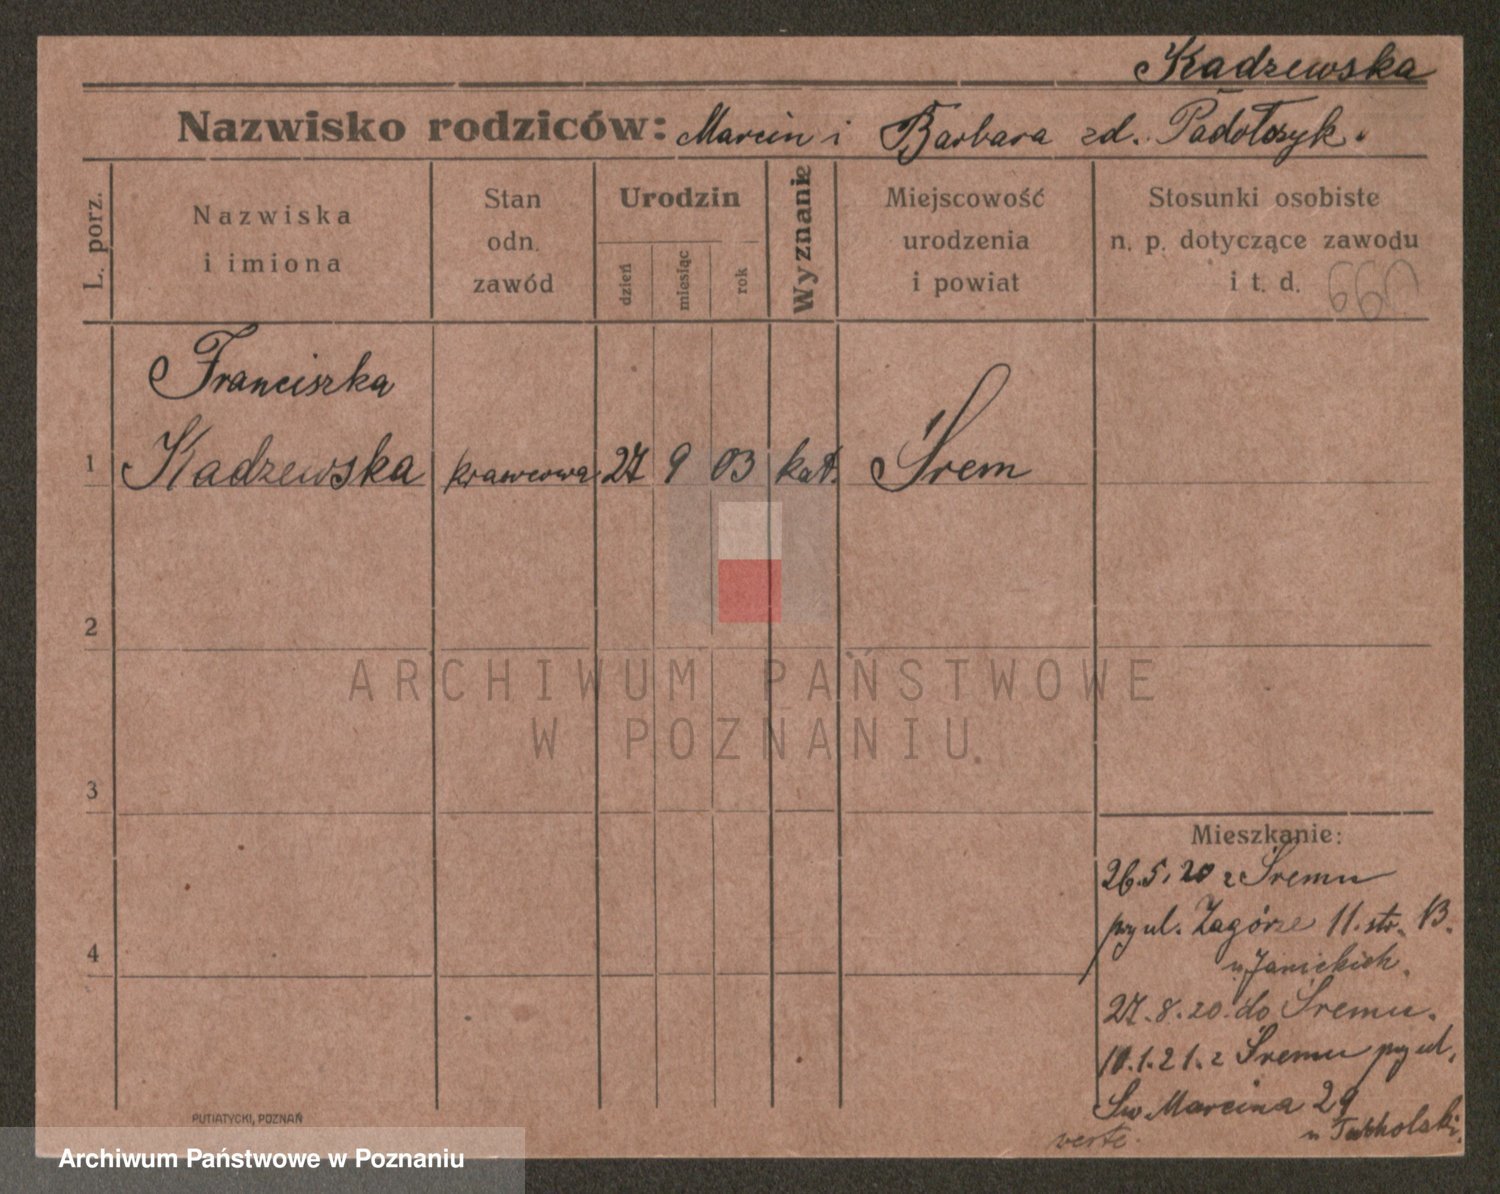 Kadzewska
Nazwisko rodziców: Marcin i Barbara zd. Padołczyk.
L. porz.
Nazwiska
i imiona
Stan
odn.
zawód
Urodzin
dzień
miesiąc
rok
Wyznanie
Miejscowość
urodzenia
i powiat
Stosunki osobiste
n. p. dotyczące zawodu
i t. d.
660
Franciszka
1 Kadzewska krawcowa 27 9 03 kat. Śrem
2
3
4
ARCHIWUM PAŃSTWOWE
W POZNANIU
Mieszkanie:
26.5.20 z Śremu
przy ul. Zagórze 11. str. B.
u Janickich.
27.8.20. do Śremu.
10.1.21. z Śremu przy ul.
Św. Marcina 29
u
verte.
PUTIATYCKI, POZNAŃ
Archiwum Państwowe w Poznaniu